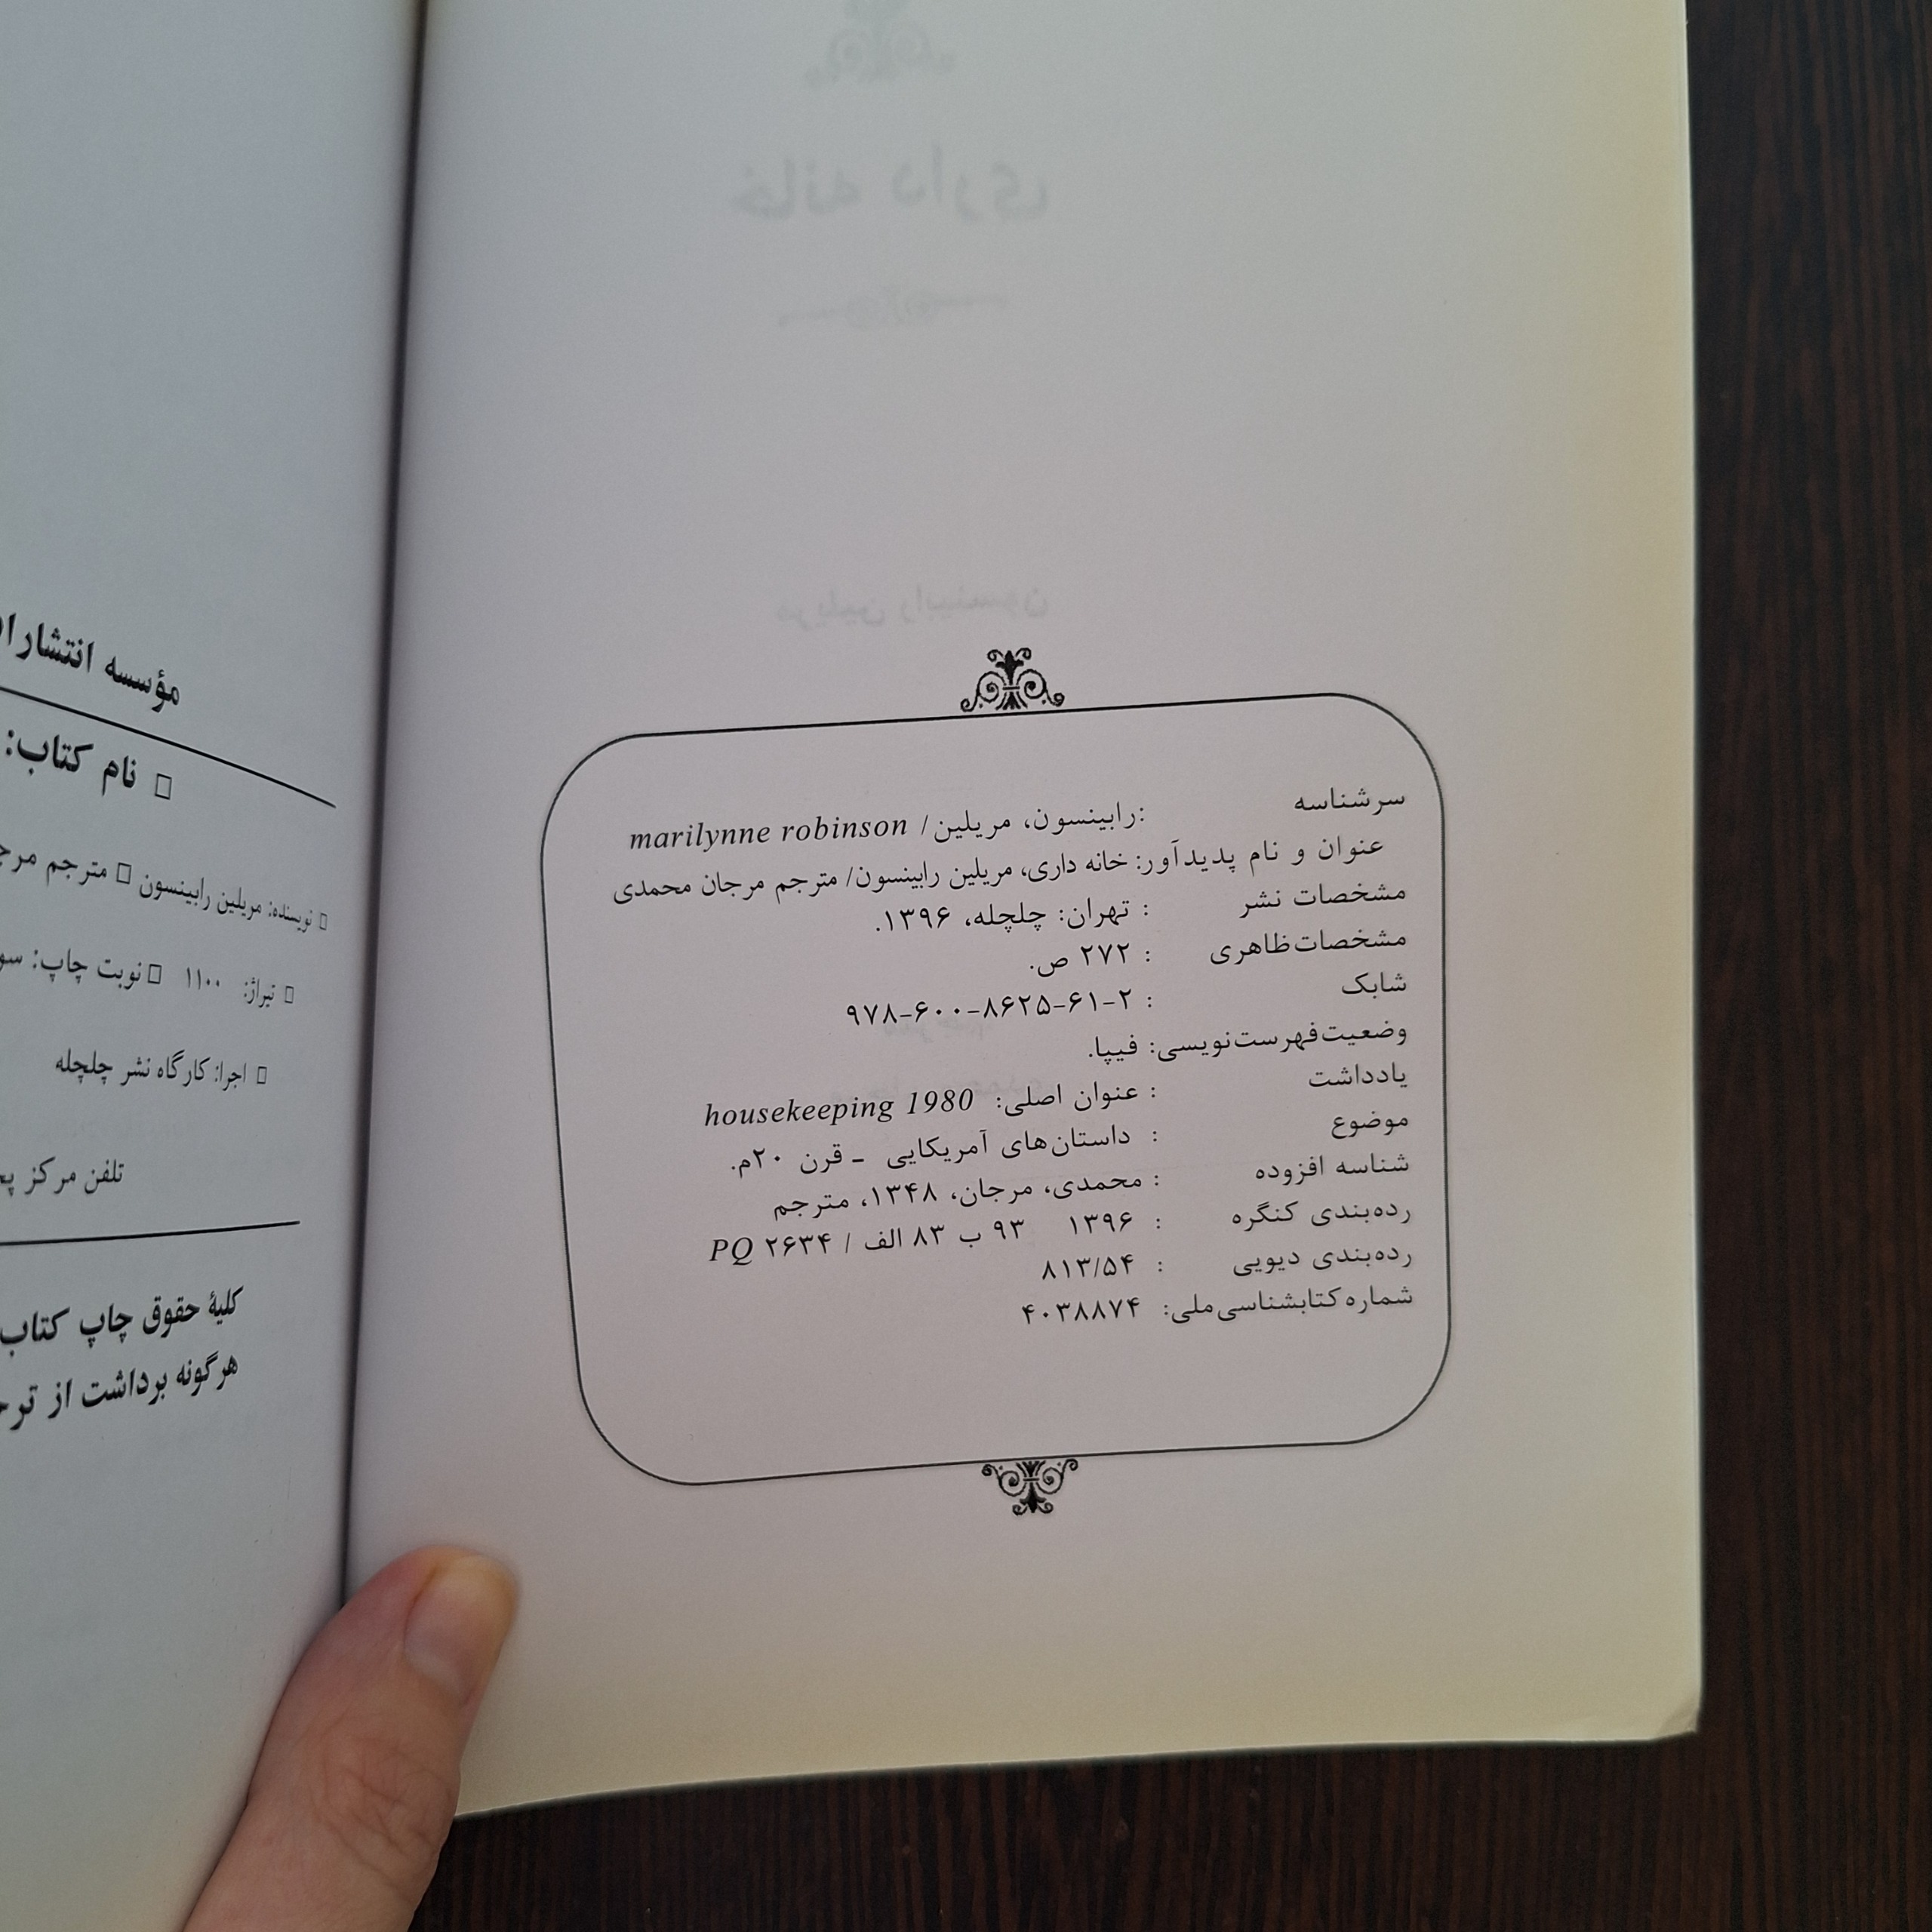 سرشناسه :رابینسون، مریلین/ marilynne robinson
عنوان و نام پدیدآور: خانه داری، مریلین رابینسون/ مترجم مرجان محمدی
مشخصات نشر : تهران: چلچله، ۱۳۹۶.
مشخصات‌ظاهری : ۲۷۲ ص.
شابک : ۹۷۸-۶۰۰-۸۶۲۵-۶۱-۲
وضعیت‌فهرست‌نویسی: فیپا.
یادداشت : عنوان اصلی: housekeeping 1980
موضوع : داستان‌های آمریکایی ـ قرن ۲۰م.
شناسه افزوده : محمدی، مرجان، ۱۳۴۸، مترجم
رده‌بندی کنگره : ۱۳۹۶ ۹۳ ب ۸۳ الف / PQ ۲۶۳۴
رده‌بندی دیویی : ۸۱۳/۵۴
شماره‌کتابشناسی‌ملی: ۴۰۳۸۸۷۴
مؤسسه
نام کتاب:
نویسنده: مریلین رابینسون مترجم
تیراژ: ۱۱۰۰ نوبت چاپ:
اجرا: کارگاه نشر چلچله
تلفن مرکز
کلیهٔ حقوق چاپ کتاب
هرگونه برداشت از
خانه داری
مریلین رابینسون